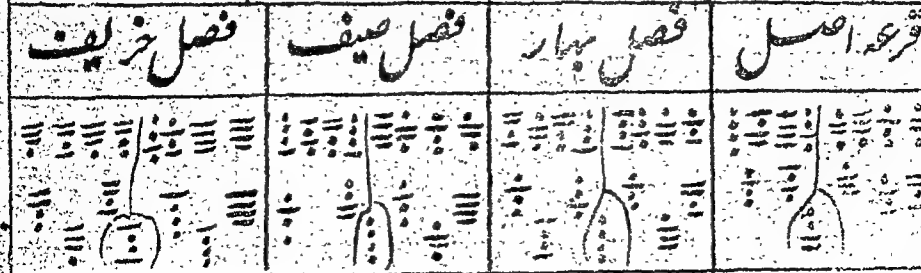 قرعہ اصل
فصل بہار
فصل صیف
فصل خریف